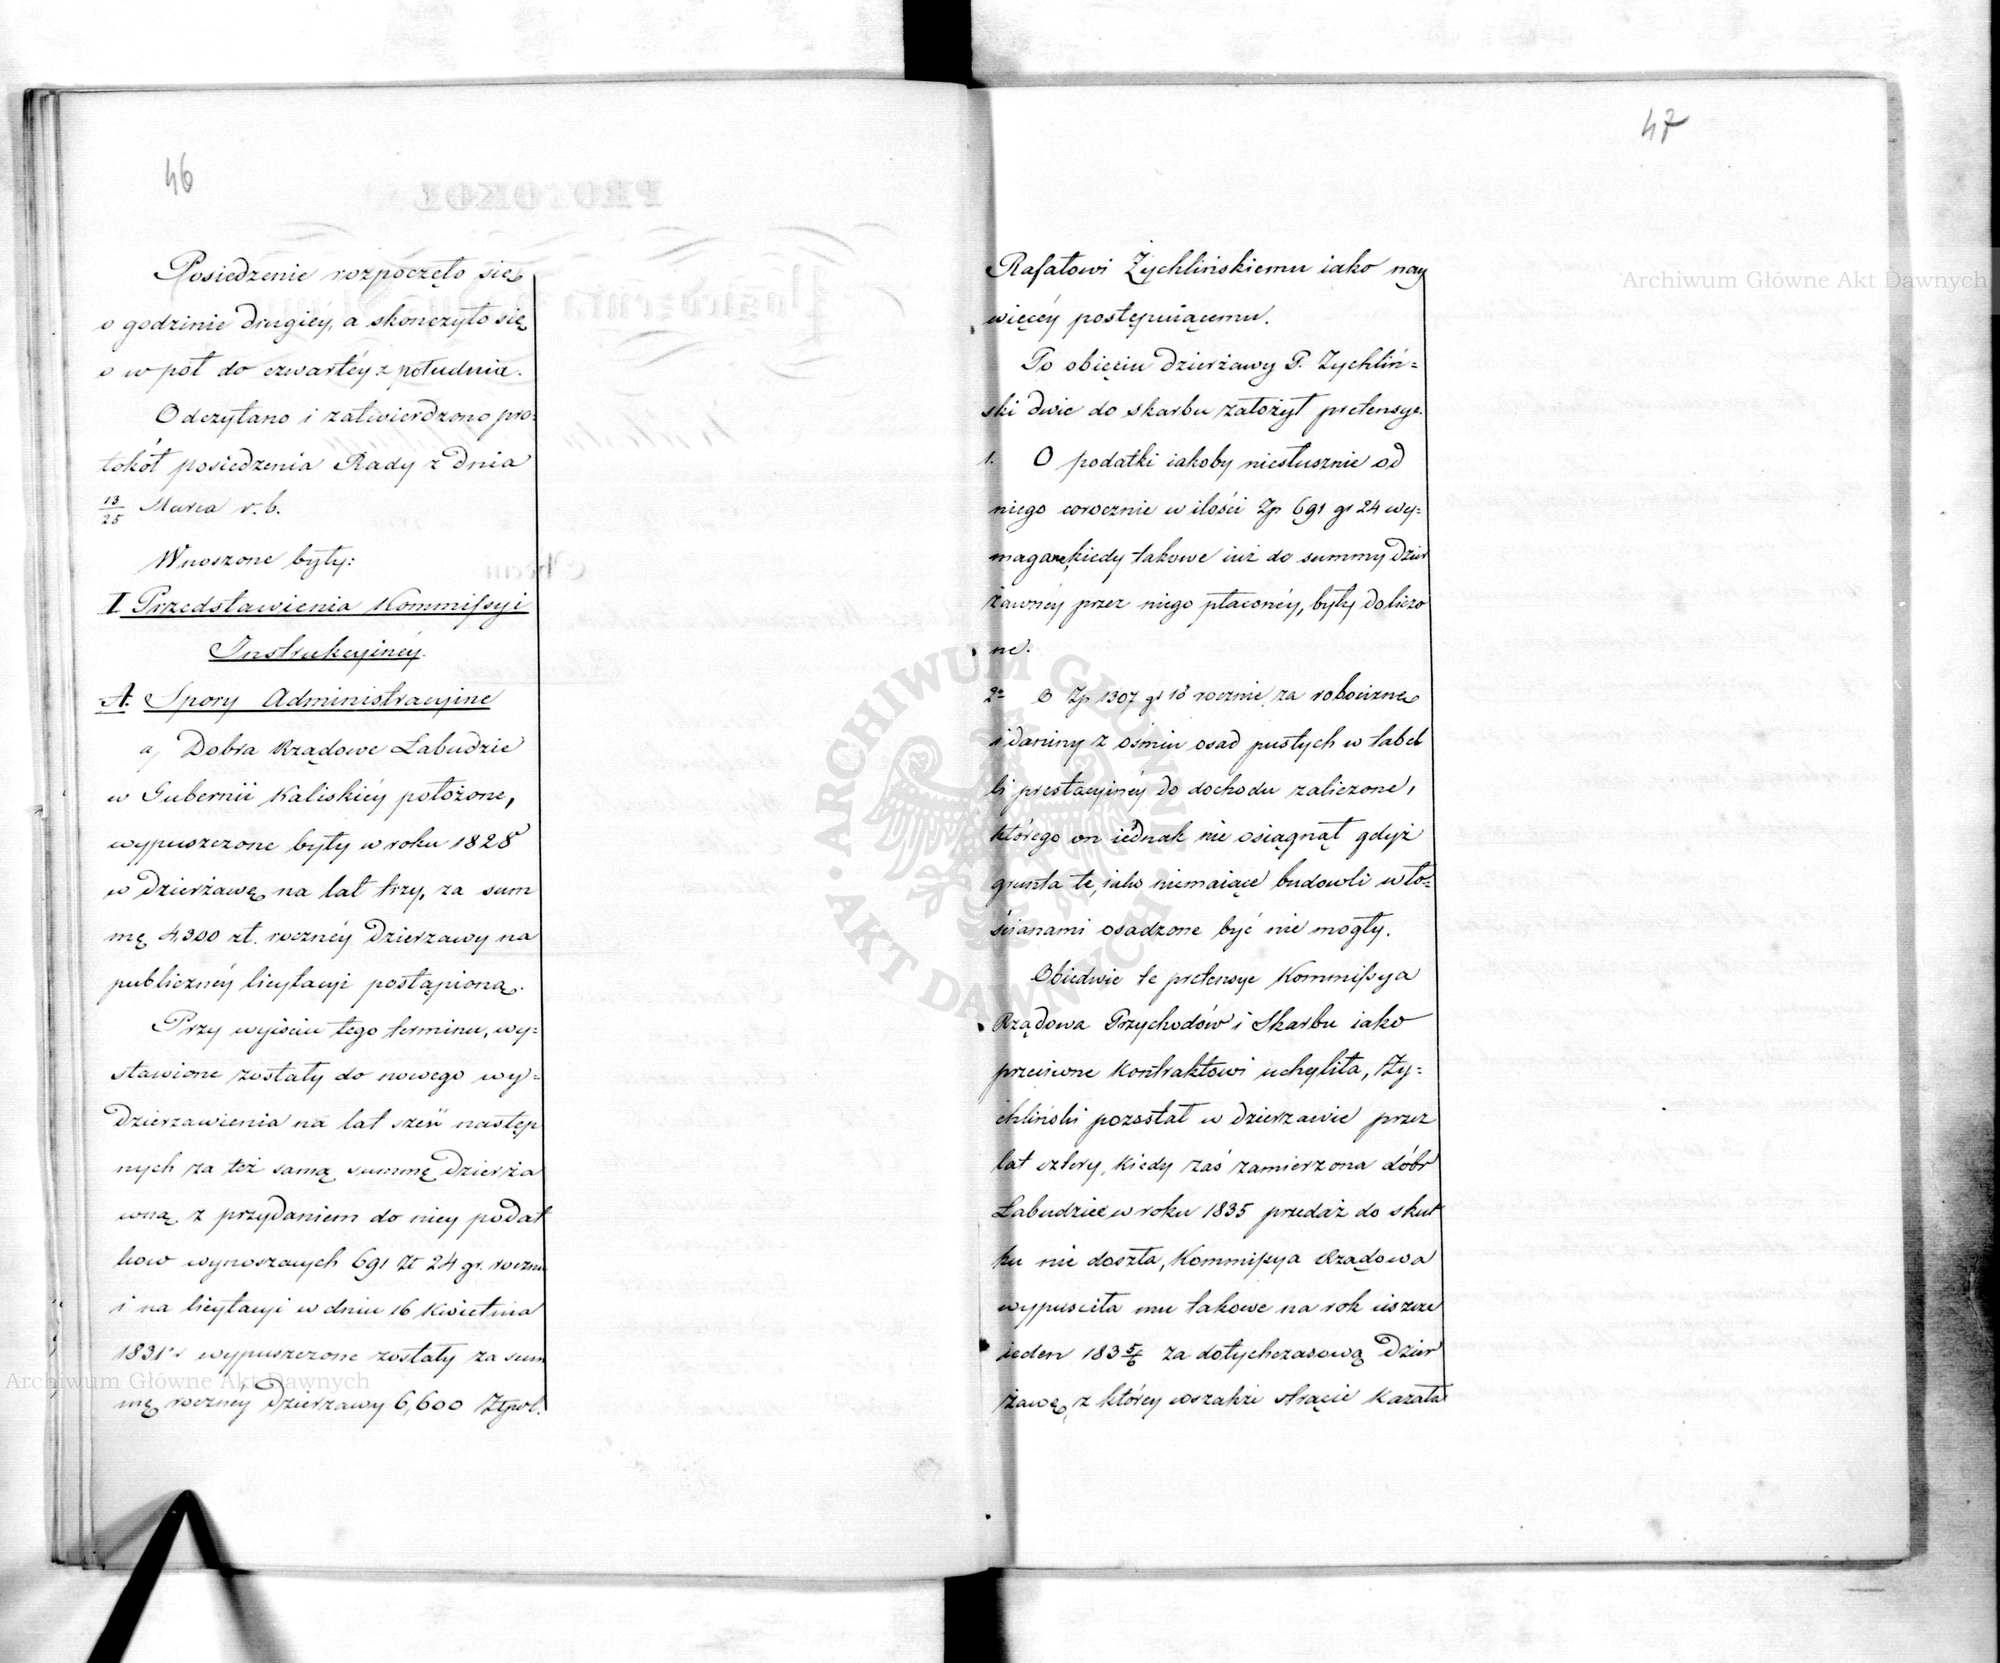 46
Posiedzenie rozpoczęło się
o godzinie drugiey, a skonczyło się
o w pół do czwartéy z południa.
Odczytano i zatwierdzono pro=
tokół posiedzenia Rady z dnia
13/25 Marca r. b.
Wnoszone były:
I. Przedstawienia Kommissyi
Instrukcyinéy.
A. Spory Administracyine
a, Dobra Rządowe Łabudzie
w Gubernii Kaliskiéy położone,
wypuszczone były w roku 1828
w dzierżawę na lat trzy, za sum
mę 4,300 zł. rocznéy dzierzawy na
publicznéy licytacyi postąpioną.
Przy wyiściu tego terminu, wy=
stawione zostały do nowego wy=
dzierzawienia na lat sześć następ
nych za też samą summę dzierża
wną z przydaniem do niey podat
kow wynoszących 691 Zł 24 gr. roczni
i na licytacyi w dniu 16 Kwietnia
1831 r wypuszczone zostały za sum
mę rocznéy dzierzawy 6,600 Złpol.
47
Rafałowi Żychlińskiemu iako nay
więcéy postępuiącemu.
Po obięciu dzierżawy P. Zychliń=
ski dwie do skarbu założył pretensye.
1. O podatki iakoby niesłusznie od
niego corocznie w ilości Zp 691 gr 24 wy=
magane, kiedy takowe iuż do summy dzier
żawnéy przez niego płaconéy, były doliczo
ne.
2e O Zp 1307 gr 18 rocznie, za robociznę
i daniny z ośmiu osad pustych w tabel
li prestacyinéy do dochodu zaliczone,
którego on iednak nie osiągnął gdyż
grunta te, iako niemaiące budowli wło=
ścianami osadzone być nie mogły.
Obiedwie te pretensye Kommissya
Rządowa Przychodów i Skarbu iako
przeciwne Kontraktowi uchyliła, Zy=
chliński pozostał w dzierzawie przez
lat cztery, kiedy zaś zamierzona dóbr
Łabudzie w roku 1835 przedaż do skut
ku nie doszła, Kommissya Rządowa
wypuściła mu takowe na rok ieszcze
ieden 1835/6 za dotychczasową dzier
żawę, z którey wszakże strącić kazała
ARCHIWUM GŁÓWNE AKT DAWNYCH
Archiwum Główne Akt Dawnych
Archiwum Główne Akt Dawnych